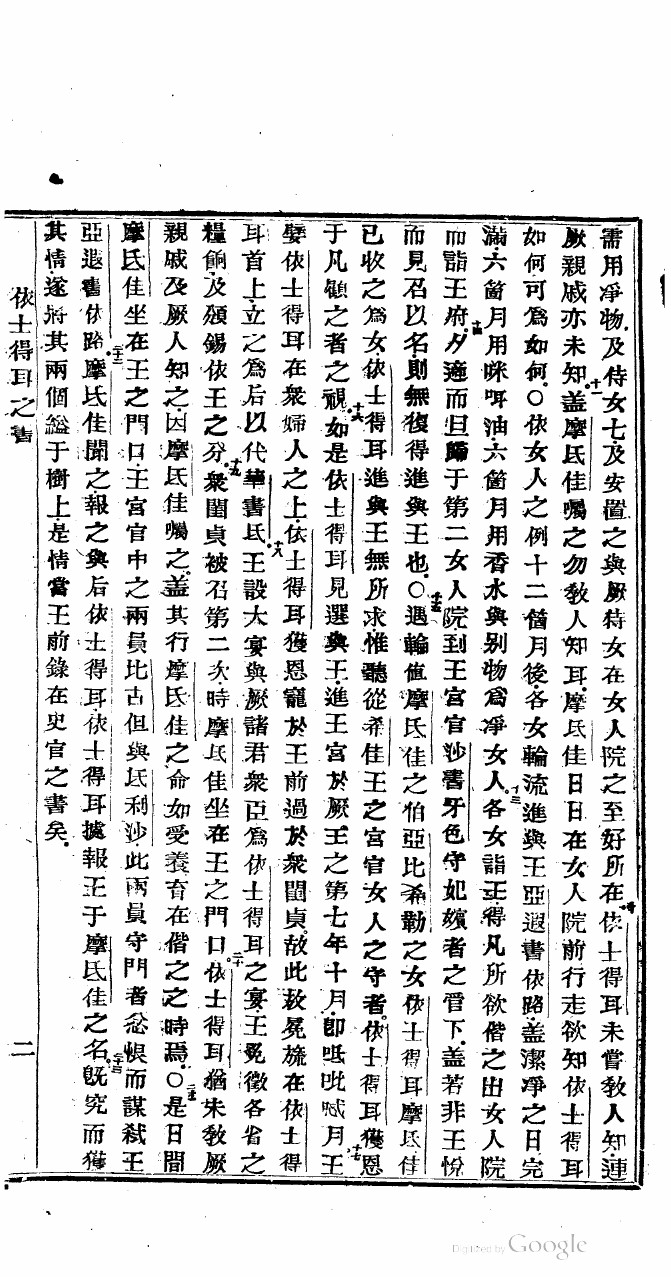 需用凈物及侍女七及安置之與厥侍女在女人院之至好所在十依士得耳未嘗敎人知連
厥親戚亦未知十一盖摩氏佳囑之勿敎人知耳摩氏佳日日在女人院前行走欲知依士得耳
如何可爲如何〇依女人之例十二箇月後各女輪流進與王亞遐書依路盖潔凈之日完
滿六箇月用咪呀油六箇月用香水與别物爲凈女人十三各女詣王得凡所欲偕之出女人院
而詣王府十四夕適而旦歸于第二女人院到王宮官沙書牙色守妃嬪者之管下盖若非王悅
而見召以名則無復得進與王也〇十五遇輪值摩氏佳之伯亞比希勒之女依士得耳摩氏佳
已收之爲女依士得耳進與王無所求惟聽從希佳王之宮官女人之守者依士得耳獲恩
于凡顧之者之視十六如是依士得耳見選與王進王宮於厥王之第七年十月卽呧吡㘔月十七王
嬖依士得耳在衆婦人之上依士得耳獲恩寵於王前過於衆閨貞故此敍冕旒在依士得
耳首上立之爲后以代華書氏十八王設大宴與厥諸君衆臣爲依士得耳之宴王冕徵各省之
糧餉及頒錫依王之分十九衆閨貞被召第二次時摩氏佳坐在王之門口二十依士得耳猶未敎厥
親戚及厥人知之因摩氏佳囑之盖其行摩氏佳之命如受養育在偕之之時焉〇二十一是日間
摩氏佳坐在王之門口王宮官中之兩員比古但與氐利沙此兩員守門者忿恨而謀弒王
亞遐書依路二十二摩氏佳聞之報之與后依士得耳依士得耳據報王于摩氏佳之名二十三旣究而獲
其情遂將其兩個縊于樹上是情當王前錄在史官之書矣
依士得耳之書
二
Digitized by Google